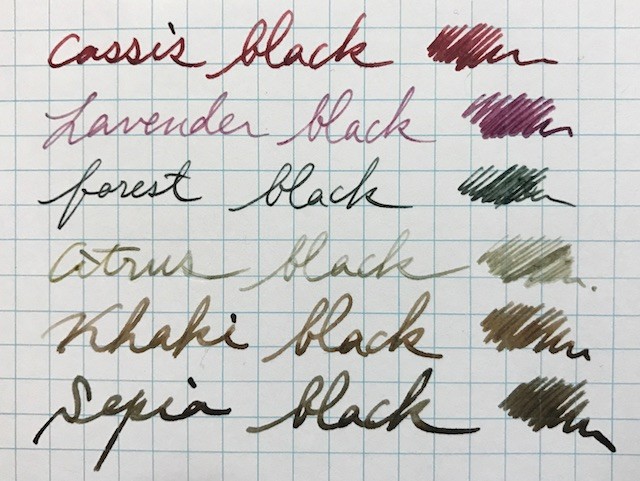 Cassis black
Lavender black
forest black
Citrus black
Khaki black
Sepia black